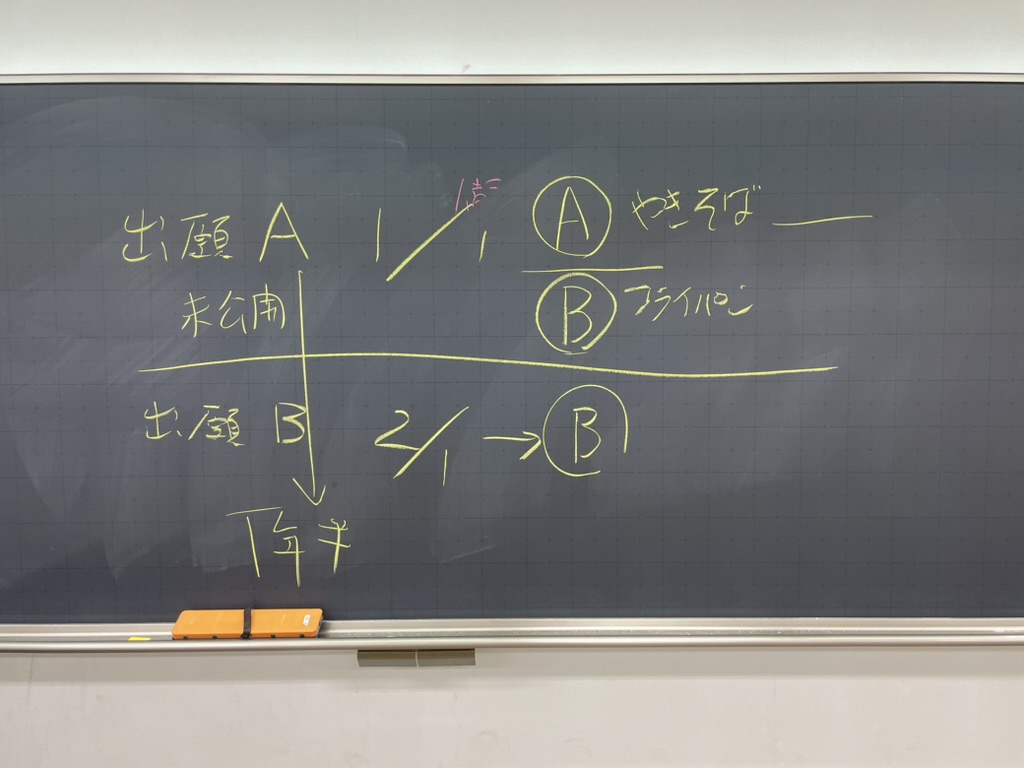 出願 A 1/1 Ⓐ やきそば
未公開 Ⓑ フライパン
出願 B 2/1 → Ⓑ
1年半